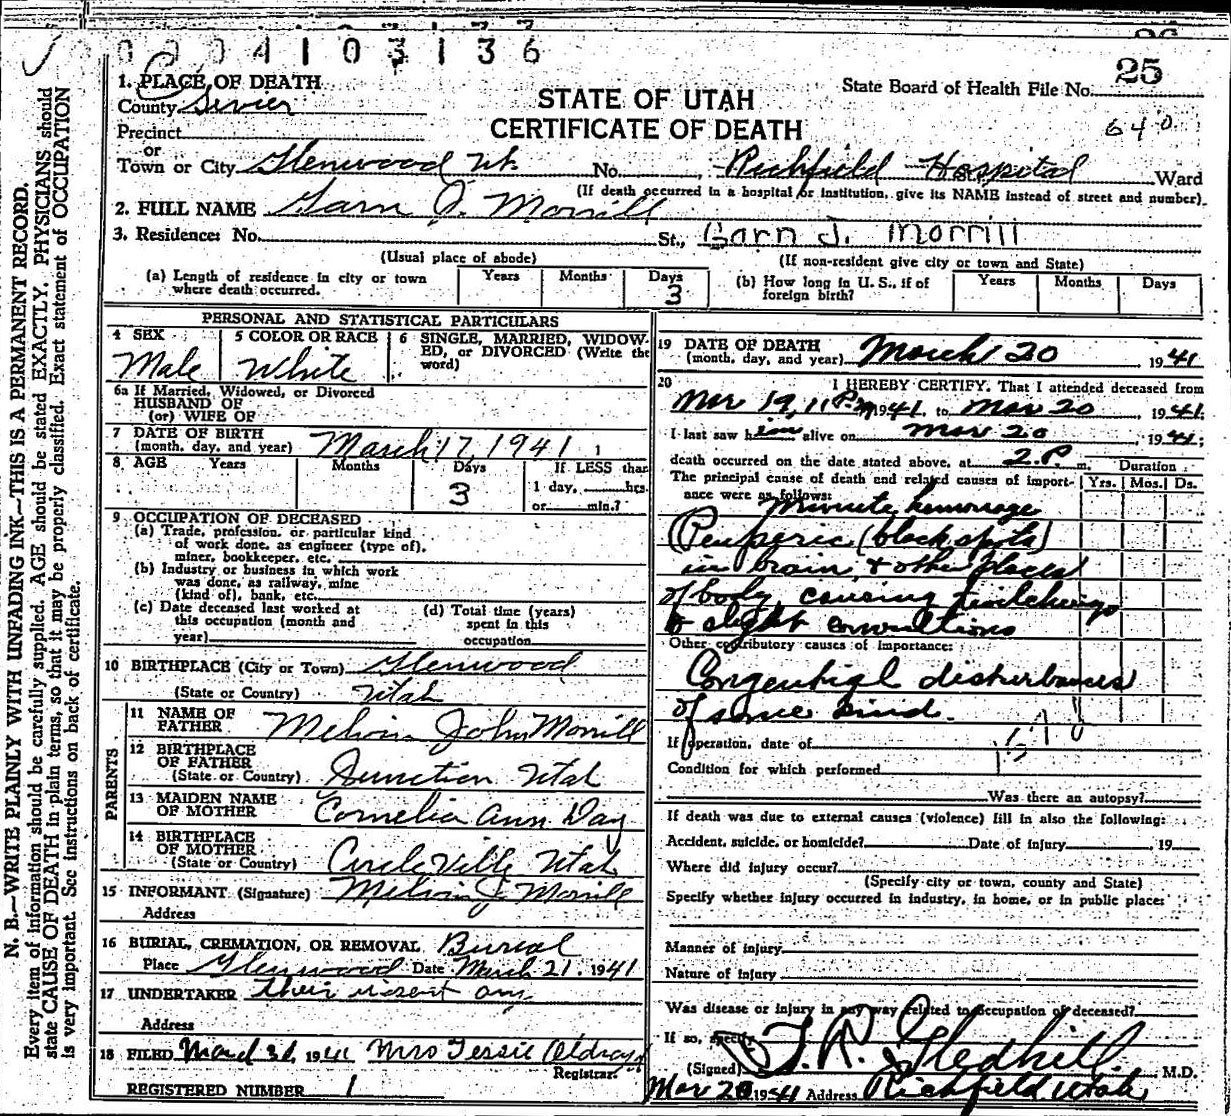 0 0 0 4 1 0 3 1 3 6
25
State Board of Health File No.
640
1. PLACE OF DEATH
County Sevier
STATE OF UTAH
CERTIFICATE OF DEATH
Precinct
or
Town or City Glenwood Ut. No. , Richfield Hospital Ward
(If death occurred in a hospital or institution, give its NAME instead of street and number).
2. FULL NAME Garn J. Morrill
3. Residence: No. St., Garn J. Morrill
(Usual place of abode) (If non-resident give city or town and State)
(a) Length of residence in city or town where death occurred. Years Months Days 3
(b) How long in U. S., if of foreign birth? Years Months Days
PERSONAL AND STATISTICAL PARTICULARS
4 SEX Male
5 COLOR OR RACE White
6 SINGLE, MARRIED, WIDOWED, or DIVORCED (Write the word)
6a If Married, Widowed, or Divorced
HUSBAND OF
(or) WIFE OF
7 DATE OF BIRTH
(month, day, and year) March 17, 1941
8 AGE Years Months Days 3
If LESS than
1 day, hrs.
or min.?
9 OCCUPATION OF DECEASED
(a) Trade, profession, or particular kind
of work done, as engineer (type of),
miner, bookkeeper, etc.
(b) Industry or business in which work
was done, as railway, mine
(kind of), bank, etc.
(c) Date deceased last worked at
this occupation (month and
year)
(d) Total time (years)
spent in this
occupation
10 BIRTHPLACE (City or Town) Glenwood
(State or Country) Utah
PARENTS
11 NAME OF
FATHER Melvin John Morrill
12 BIRTHPLACE
OF FATHER
(State or Country) Junction Utah
13 MAIDEN NAME
OF MOTHER Cornelia Ann Day
14 BIRTHPLACE
OF MOTHER
(State or Country) CircleVille Utah
15 INFORMANT (Signature) Melvin J. Morrill
Address
16 BURIAL, CREMATION, OR REMOVAL Burial
Place Glenwood Date March 21. 1941
17 UNDERTAKER
Address
18 FILED March 31 1941 Mrs Tessie
Registrar.
REGISTERED NUMBER 1
19 DATE OF DEATH
(month, day, and year) March 20 1941
20 I HEREBY CERTIFY, That I attended deceased from
Mar 19, 11 P.m 1941, to Mar 20, 1941
I last saw him alive on Mar 20, 1941;
death occurred on the date stated above, at 2 P. m. Duration
The principal cause of death and related causes of importance were as follows: Yrs. Mos. Ds.
Minute hemorrage
(black spots)
in brain & other places
of body causing twitchings
& slight convultions
Other contributory causes of importance:
Congential disturbances
of some kind.
If operation, date of
Condition for which performed
Was there an autopsy?
If death was due to external causes (violence) fill in also the following:
Accident, suicide, or homicide? Date of injury 19
Where did injury occur?
(Specify city or town, county and State)
Specify whether injury occurred in industry, in home, or in public place:
Manner of injury
Nature of injury
Was disease or injury in any way related to occupation of deceased?
If so, specify
(Signed) T. R. Gledhill M.D.
Mar 20 1941 Address Richfield Utah
N. B.—WRITE PLAINLY WITH UNFADING INK—THIS IS A PERMANENT RECORD.
Every item of information should be carefully supplied. AGE should be stated EXACTLY. PHYSICIANS should
state CAUSE OF DEATH in plain terms, so that it may be properly classified. Exact statement of OCCUPATION
is very important. See instructions on back of certificate.